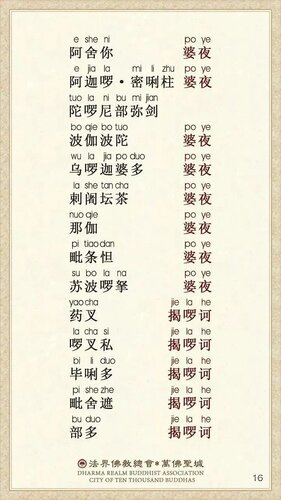 e she ni po ye
阿舍你 婆夜
e jia la mi li zhu po ye
阿迦啰·密唎柱 婆夜
tuo la ni bu mi jian
陀啰尼部弥剑
bo qie bo tuo po ye
波伽波陀 婆夜
wu la jia po duo po ye
乌啰迦婆多 婆夜
la she tan cha po ye
剌阇坛茶 婆夜
nuo qie po ye
那伽 婆夜
pi tiao dan po ye
毗条怛 婆夜
su bo la na po ye
苏波啰拏 婆夜
yao cha jie la he
药叉 揭啰诃
la cha si jie la he
啰叉私 揭啰诃
bi li duo jie la he
毕唎多 揭啰诃
pi she zhe jie la he
毗舍遮 揭啰诃
bu duo jie la he
部多 揭啰诃
法界佛教總會·萬佛聖城
DHARMA REALM BUDDHIST ASSOCIATION
CITY OF TEN THOUSAND BUDDHAS
16